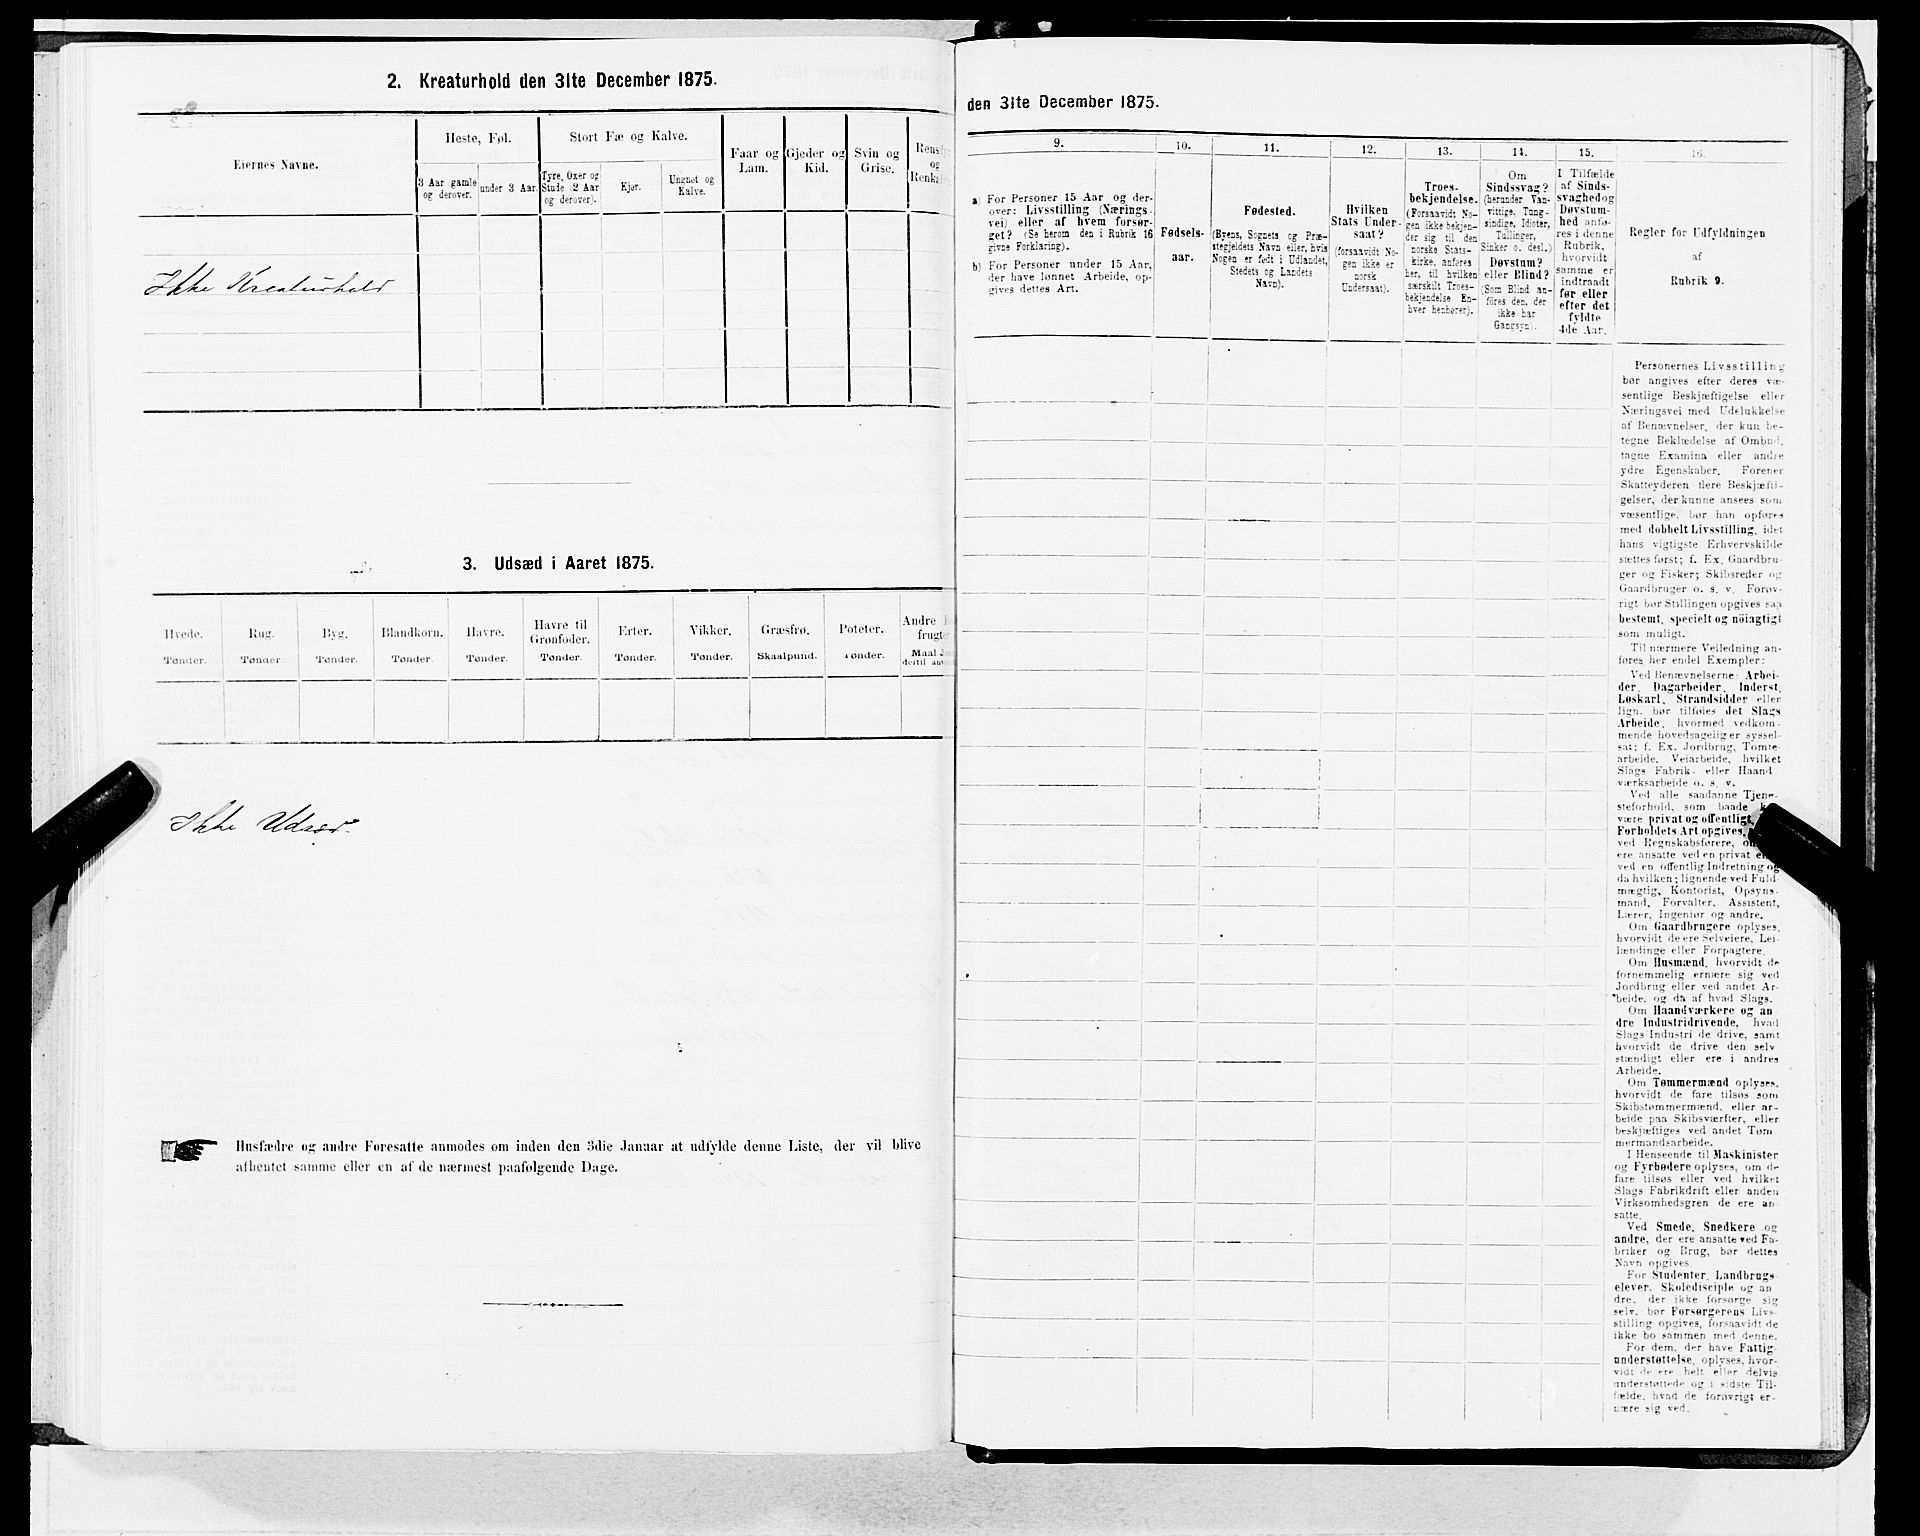 2. Kreaturhold den 31te December 1875.
Eiernes Navne.
Heste, Føl.
3 Aar gamle og derover.
under 3 Aar.
Stort Fæ og Kalve.
Tyre, Oxer og Stude (2 Aar og derover).
Kjør.
Ungnøt og Kalve.
Faar og Lam.
Gjeder og Kid.
Svin og Grise.
og
Ikke Kreaturhold
3. Udsæd i Aaret 1875.
Hvede.
Tønder.
Rug.
Tønder.
Byg.
Tønder.
Blandkorn.
Tønder.
Havre.
Tønder.
Havre til Grønfoder.
Tønder.
Erter.
Tønder.
Vikker.
Tønder.
Græsfrø.
Skaalpund.
Poteter.
Tønder.
Andre
Maal
Ikke Udsæd.
Husfædre og andre Foresatte anmodes om inden den 3die Januar at udfylde denne Liste, der vil blive
afhentet samme eller en af de nærmest paafølgende Dage.
den 31te December 1875.
9.
a) For Personer 15 Aar og der-
over: Livsstilling (Nærings-
vei) eller af hvem forsør-
get? (Se herom den i Rubrik 16
givne Forklaring).
b) For Personer under 15 Aar,
der have lønnet Arbeide, op-
gives dettes Art.
10.
Fødsels-
aar.
11.
Fødested.
(Byens, Sognets og Præ-
stegjeldets Navn eller, hvis
Nogen er født i Udlandet,
Stedets og Landets
Navn).
12.
Hvilken
Stats Under-
saat?
(forsaavidt No-
gen ikke er
norsk
Undersaat).
13.
Troes-
bekjendelse.
(Forsaavidt No-
gen ikke bekjen-
der sig til den
norske Stats-
kirke, anføres
her, til hvilken
særskilt Troes-
bekjendelse En-
hver henhører).
14.
Om
Sindssvag?
(herunder Van-
vittige, Tung-
sindige, Idioter,
Tullinger,
Sinker o. desl.)
Døvstum?
eller Blind?
(Som Blind an-
føres den, der
ikke har
Gangsyn).
15.
I Tilfælde
af Sinds-
svaghed og
Døvstum-
hed anfø-
res i denne
Rubrik,
hvorvidt
samme er
indtraadt
før eller
efter det
fyldte
4de Aar.
16.
Regler for Udfyldningen
af
Rubrik 9.
Personernes Livsstilling
bør angives efter deres væ-
sentlige Beskjæftigelse eller
Næringsvei med Udelukkelse
af Benævnelser, der kun be-
tegne Beklædelse af Ombud,
tagne Examina eller andre
ydre Egenskaber. Forener
Skatteyderen flere Beskjæfti-
gelser, der kunne ansees som
væsentlige, bør han opføres
med dobbelt Livsstilling, idet
hans vigtigste Erhvervskilde
sættes først; f. Ex. Gaardbru-
ger og Fisker; Skibsreder og
Gaardbruger o. s. v. Forøv-
rigt bør Stillingen opgives saa
bestemt, specielt og nöiagtigt
som muligt.
Til nærmere Veiledning an-
føres her endel Exempler:
Ved Benævnelserne: Arbei-
der, Dagarbeider, Inderst,
Løskarl, Strandsidder eller
lign. bør tilføies det Slags
Arbeide, hvormed vedkom-
mende hovedsagelig er syssel-
sat; f. Ex. Jordbrug, Tomte-
arbeide, Veiarbeide, hvilket
Slags Fabrik- eller Haand
værksarbeide o. s. v.
Ved alle saadanne Tjene-
steforhold, som baade
være privat og offentligt,
Forholdets Art opgives,
ved Regnskabsførere,
ere ansatte ved en privat
ved en offentlig Indretning og
da hvilken; lignende ved Fuld-
mægtig, Kontorist, Opsyns-
mand, Forvalter, Assistent,
Lærer, Ingeniør og andre.
Om Gaardbrugere oplyses,
hvorvidt de ere Selveiere, Lei-
lændinge eller Forpagtere.
Om Husmænd, hvorvidt de
fornemmelig ernære sig ved
Jordbrug eller ved andet Ar-
beide, og da af hvad Slags.
Om Haandværkere og an
dre Industridrivende, hvad
Slags Industri de drive, samt
hvorvidt de drive den selv
stændigt eller ere i andres
Arbeide.
Om Tømmermænd oplyses,
hvorvidt de fare tilsøs som
Skibstømmermænd, eller ar-
beide paa Skibsværfter, eller
beskjæftiges ved andet Tøm
mermandsarbeide.
I Henseende til Maskinister
og Fyrbødere oplyses, om de
fare tilsøs eller ved hvilket
Slags Fabrikdrift eller anden
Virksomhedsgren de ere an-
satte.
Ved Smede, Snedkere og
andre, der ere ansatte ved Fa-
briker og Brug, bør dettes
Navn opgives.
For Studenter, Landbrugs-
elever, Skoledisciple og an
dre, der ikke forsørge sig
selv, bør Forsørgerens Livs-
stilling opgives, forsaavidt de
ikke bo sammen med denne.
For dem, der have Fattig-
understøttelse, oplyses, hvor-
vidt de ere helt eller delvis
understøttede og i sidste Til-
fælde, hvad de forøvrigt er-
nære sig ved.